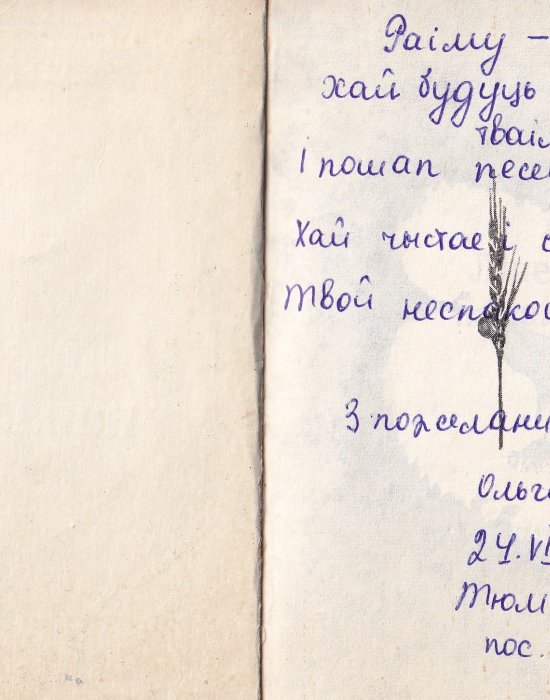 Раіму –
хай будуць
тваім
І пошап песе
Хай чыстае і с
Твой неспакой
З пожелани
Ольг
24.VI
Тюм
пос.